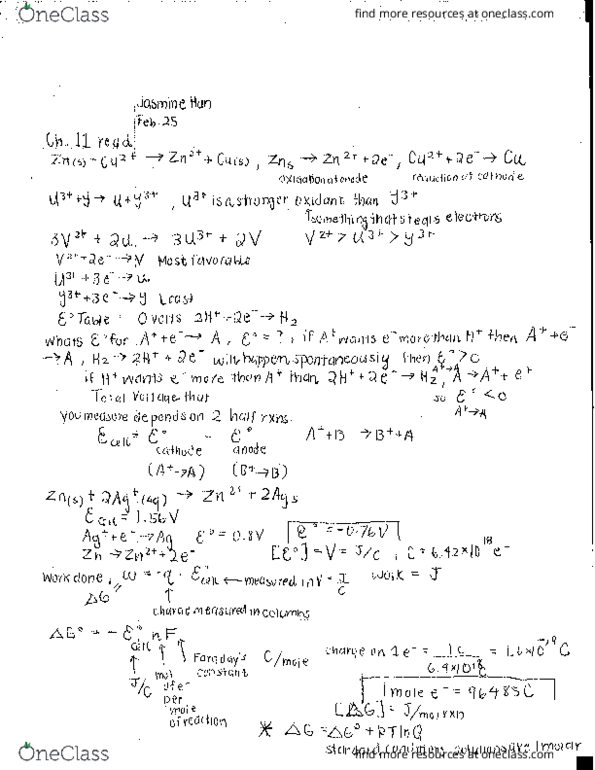 OneClass
find more resources at oneclass.com
Jasmine Han
Feb. 25
Ch. 11 read
Zn(s) + Cu²⁺ → Zn²⁺ + Cu(s), Zns → Zn²⁺ + 2e⁻, Cu²⁺ + 2e⁻ → Cu
oxidation at anode reduction at cathode
U³⁺ + y → U + y³⁺, U³⁺ is a stronger oxidant than y³⁺
↑ something that steals electrons
3V²⁺ + 2U → 3U³⁺ + 2V V²⁺ > U³⁺ > y³⁺
V²⁺ + 2e⁻ → V Most favorable
U³⁺ + 3e⁻ → U
y³⁺ + 3e⁻ → y Least
Ɛ° Table: 0 volts 2H⁺ + 2e⁻ → H₂
whats Ɛ° for A⁺ + e⁻ → A, Ɛ° = ?, if A⁺ wants e⁻ more than H⁺ then A⁺ + e⁻
→ A, H₂ → 2H⁺ + 2e⁻ will happen spontaneously then Ɛ° > 0
A⁺→A
if H⁺ wants e⁻ more than A⁺ than 2H⁺ + 2e⁻ → H₂, A → A⁺ + e⁺
Total voltage that so Ɛ° < 0
A⁺→A
you measure depends on 2 half rxns.
Ɛcell = Ɛ° - Ɛ° A⁺ + B → B⁺ + A
cathode anode
(A⁺→A) (B⁺→B)
Zn(s) + 2Ag⁺(aq) → Zn²⁺ + 2Ags
Ɛcell = 1.56V
Ag⁺ + e⁻ → Ag Ɛ° = 0.8V Ɛ° = -0.76V
Zn → Zn²⁺ + 2e⁻ [Ɛ°] = V = J/C, C = 6.42×10¹⁸ e⁻
work done, ω = -q · Ɛcell ← measured in V = J/C work = J
ΔG ↑
charge measured in columns
ΔG° = - Ɛ° n F
cell
J/C mol of e⁻ per mole of reaction Faraday's constant C/mole
charge on 1e⁻ = 1C / 6.4×10¹⁸ = 1.6×10⁻¹⁹ C
1 mole e⁻ = 96485C
[ΔG] = J/mol rxn
* ΔG = ΔG° + RTlnQ
OneClass
find more resources at oneclass.com